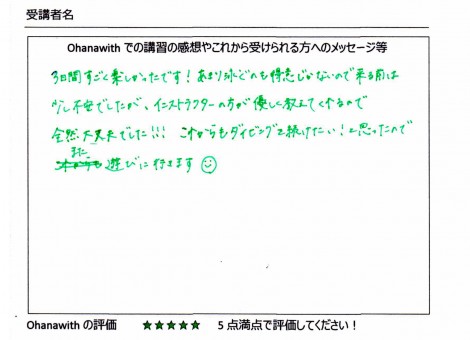 受講者名
Ohanawith での講習の感想やこれから受けられる方へのメッセージ等
3日間すごく楽しかったです！あまり泳ぐのも得意じゃないので来る前は
少し不安でしたが、インストラクターの方が優しく教えてくれるので
全然大丈夫でした!!! これからもダイビングを続けたい！と思ったので
また
遊びに行きます
Ohanawith の評価 ★★★★★ 5 点満点で評価してください！